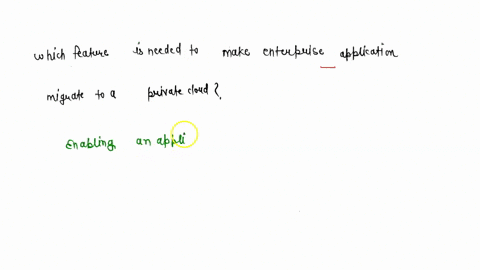 which feature is needed to make enterprise application
migrate to a private cloud?
Enabling an appli